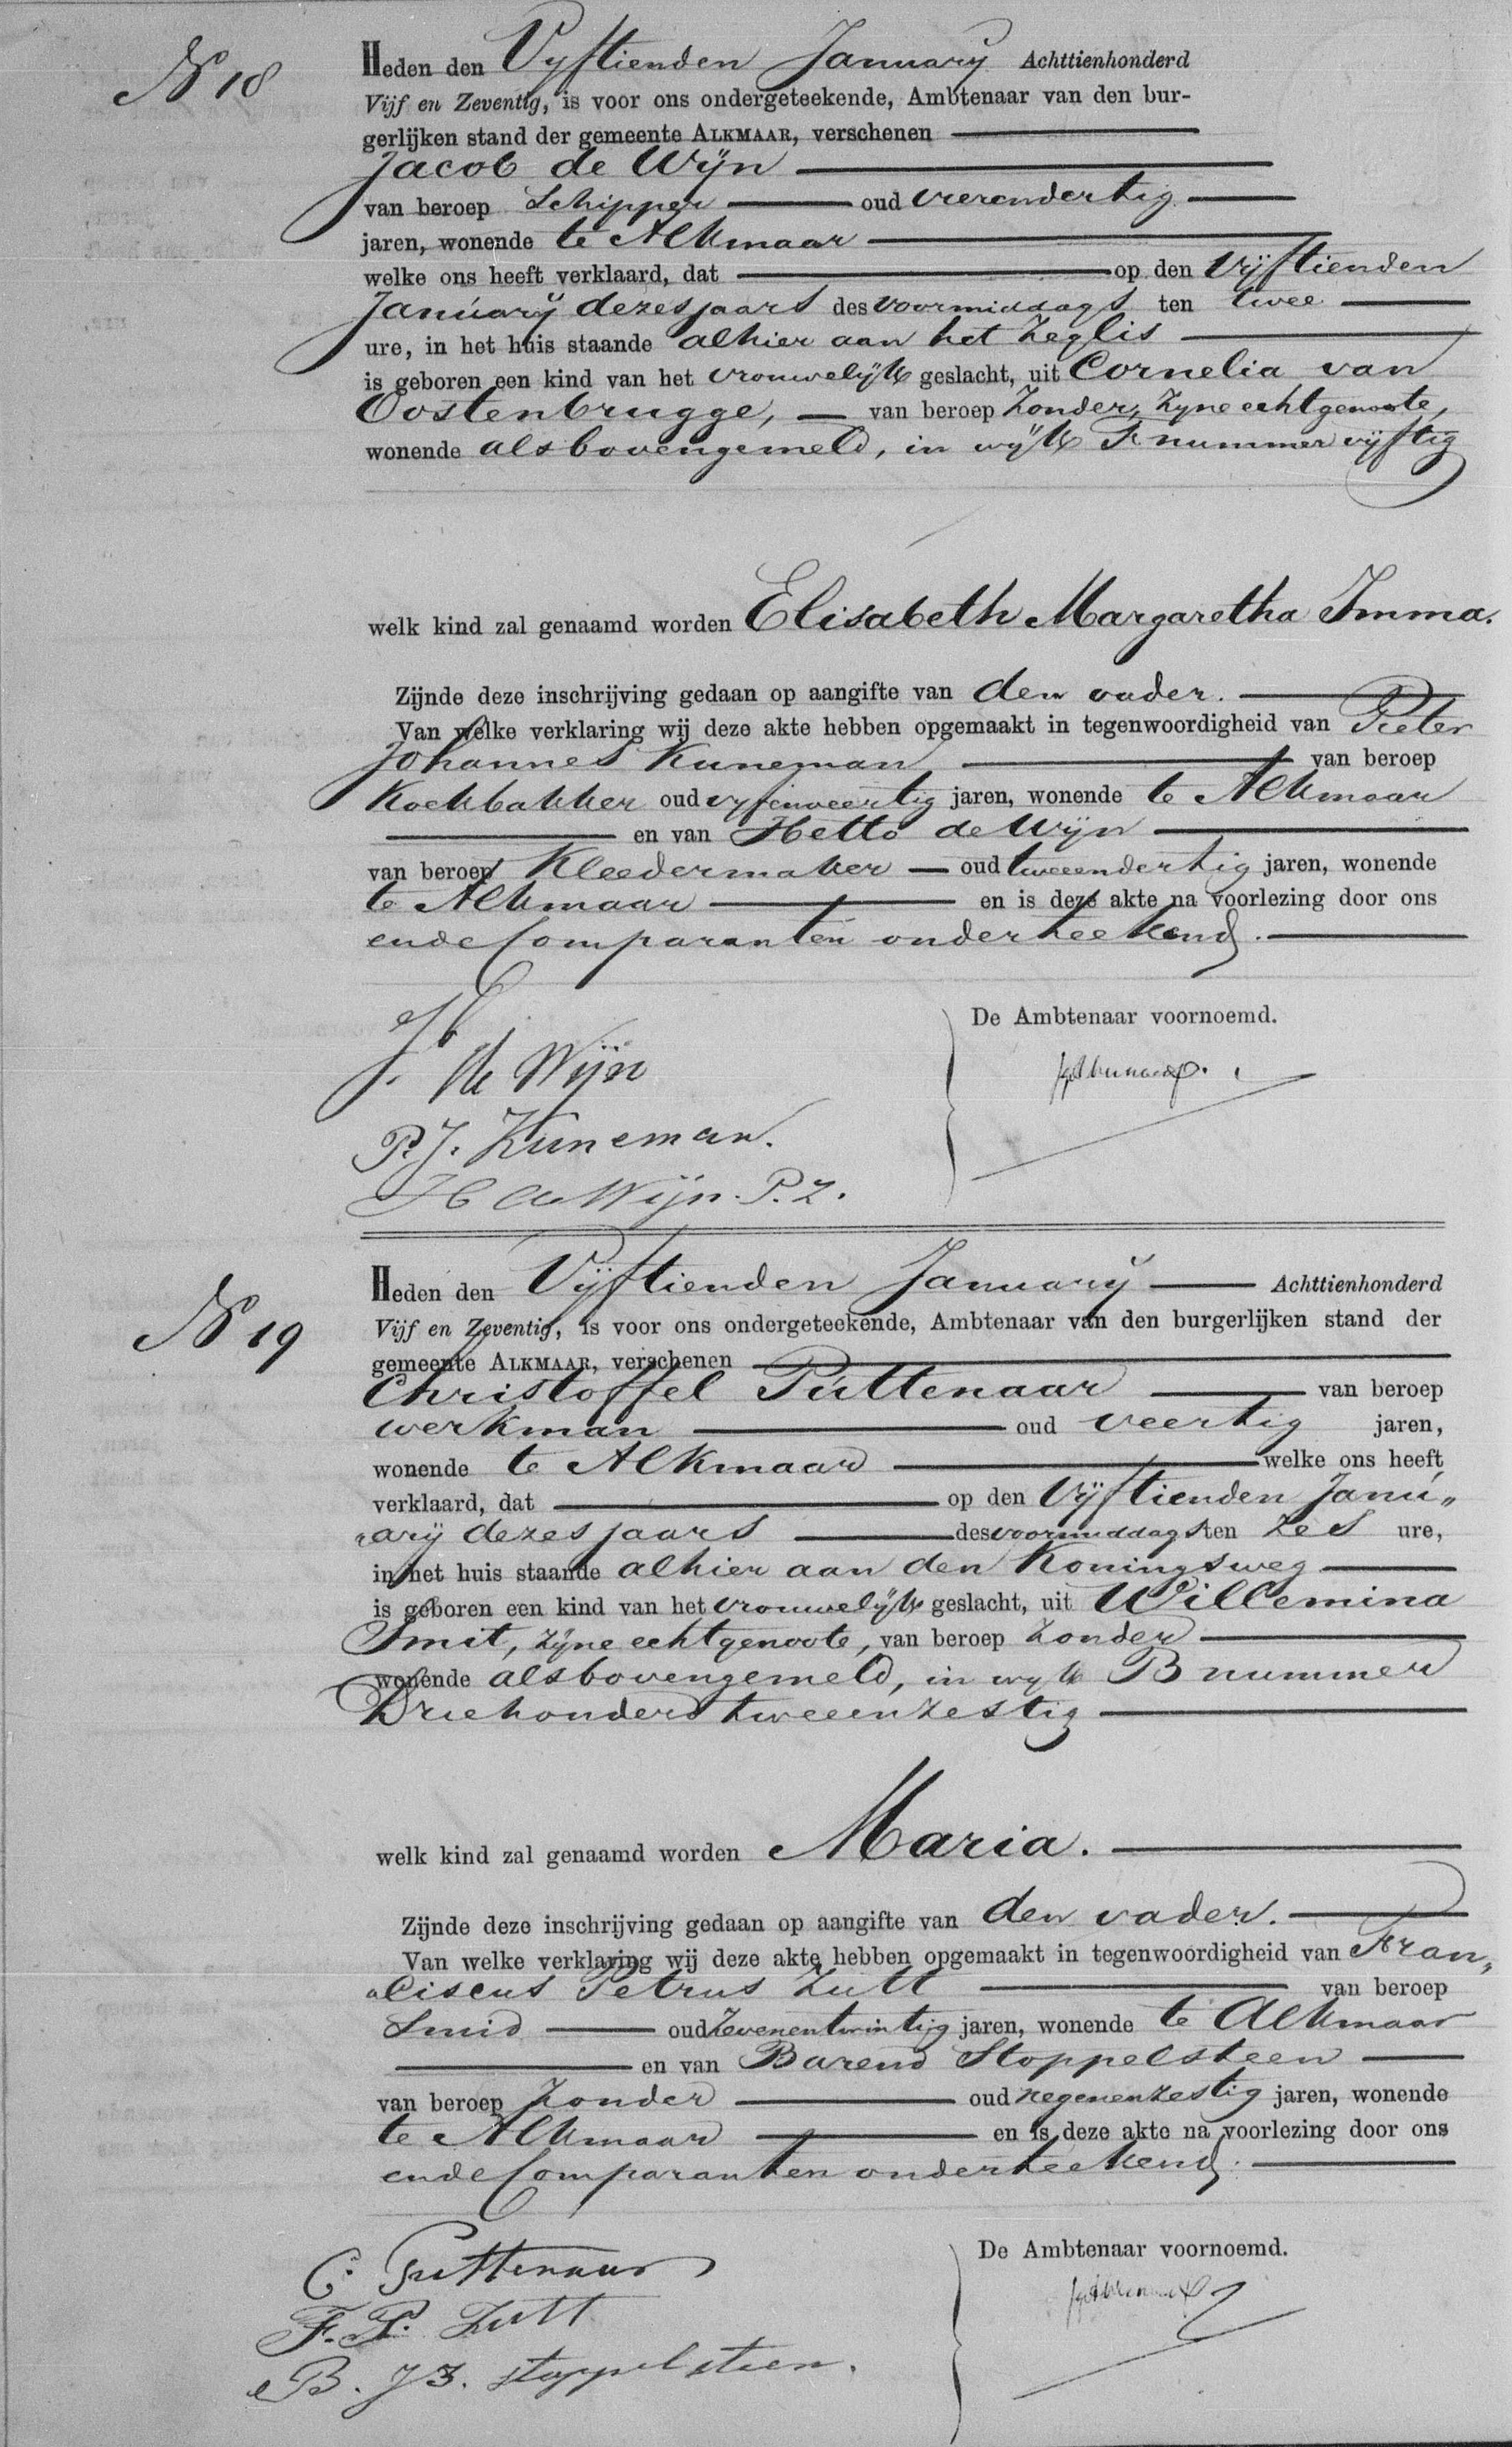 N 18
Heden den Vyftienden January Achttienhonderd
Vijf en Zeventig, is voor ons ondergeteekende, Ambtenaar van den bur-
gerlijken stand der gemeente ALKMAAR, verschenen
Jacob de Wijn
van beroep Schipper oud vierendertig
jaren, wonende te Alkmaar
welke ons heeft verklaard, dat op den Vijftienden
January dezes jaars des voormiddags ten twee
ure, in het huis staande alhier aan het Zeglis
is geboren een kind van het vrouwelijk geslacht, uit Cornelia van
Oostenbrugge, van beroep Zonder, Zyne echtgenoote,
wonende als bovengemeld, in wijk F nummer vijftig
welk kind zal genaamd worden Elisabeth Margaretha Imma.
Zijnde deze inschrijving gedaan op aangifte van den vader.
Van welke verklaring wij deze akte hebben opgemaakt in tegenwoordigheid van Pieter
Johannes Kuneman van beroep
Koekbakker oud vyfenveertig jaren, wonende te Alkmaar
en van Hetto de Wijn
van beroep Kleedermaker oud tweeendertig jaren, wonende
te Alkmaar en is deze akte na voorlezing door ons
en de Comparanten onderteekend.
De Ambtenaar voornoemd.
J. de Wijn
P.J. Kuneman.
H de Wijn. P.z.
N 19
Heden den Vijftienden January Achttienhonderd
Vijf en Zeventig, is voor ons ondergeteekende, Ambtenaar van den burgerlijken stand der
gemeente ALKMAAR, verschenen
Christoffel Puttenaar van beroep
werkman oud veertig jaren,
wonende te Alkmaar welke ons heeft
verklaard, dat op den Vijftienden Janu„
„ary dezes jaars des voormiddags ten zes ure,
in het huis staande alhier aan den Koningsweg
is geboren een kind van het vrouwelijk geslacht, uit Willemina
Smit, zijne echtgenoote, van beroep zonder
wonende als bovengemeld, in wyk B nummer
Driehonderd tweeenzestig
welk kind zal genaamd worden Maria.
Zijnde deze inschrijving gedaan op aangifte van den vader.
Van welke verklaring wij deze akte hebben opgemaakt in tegenwoordigheid van Fran„
„ciscus Petrus Zutt van beroep
Smid oud Zevenentwintig jaren, wonende te Alkmaar
en van Barend Stoppelsteen
van beroep Zonder oud negenenzestig jaren, wonende
te Alkmaar en is deze akte na voorlezing door ons
en de Comparanten onderteekend.
De Ambtenaar voornoemd.
C. Puttenaar
F. P. Zutt
B. Jz. stoppelsteen.